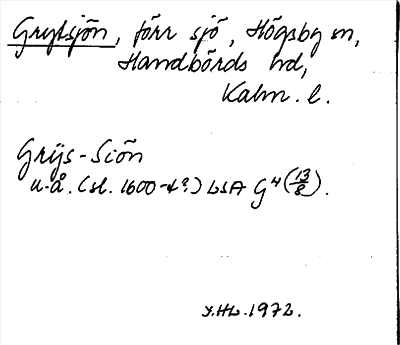 Grytsjön, förr sjö, Högsby sn,
Handbörds hd,
Kalm. l.
Grÿs-Siön
u.å. (sl. 1600-t?) LSA G4 (13/8).
1972.